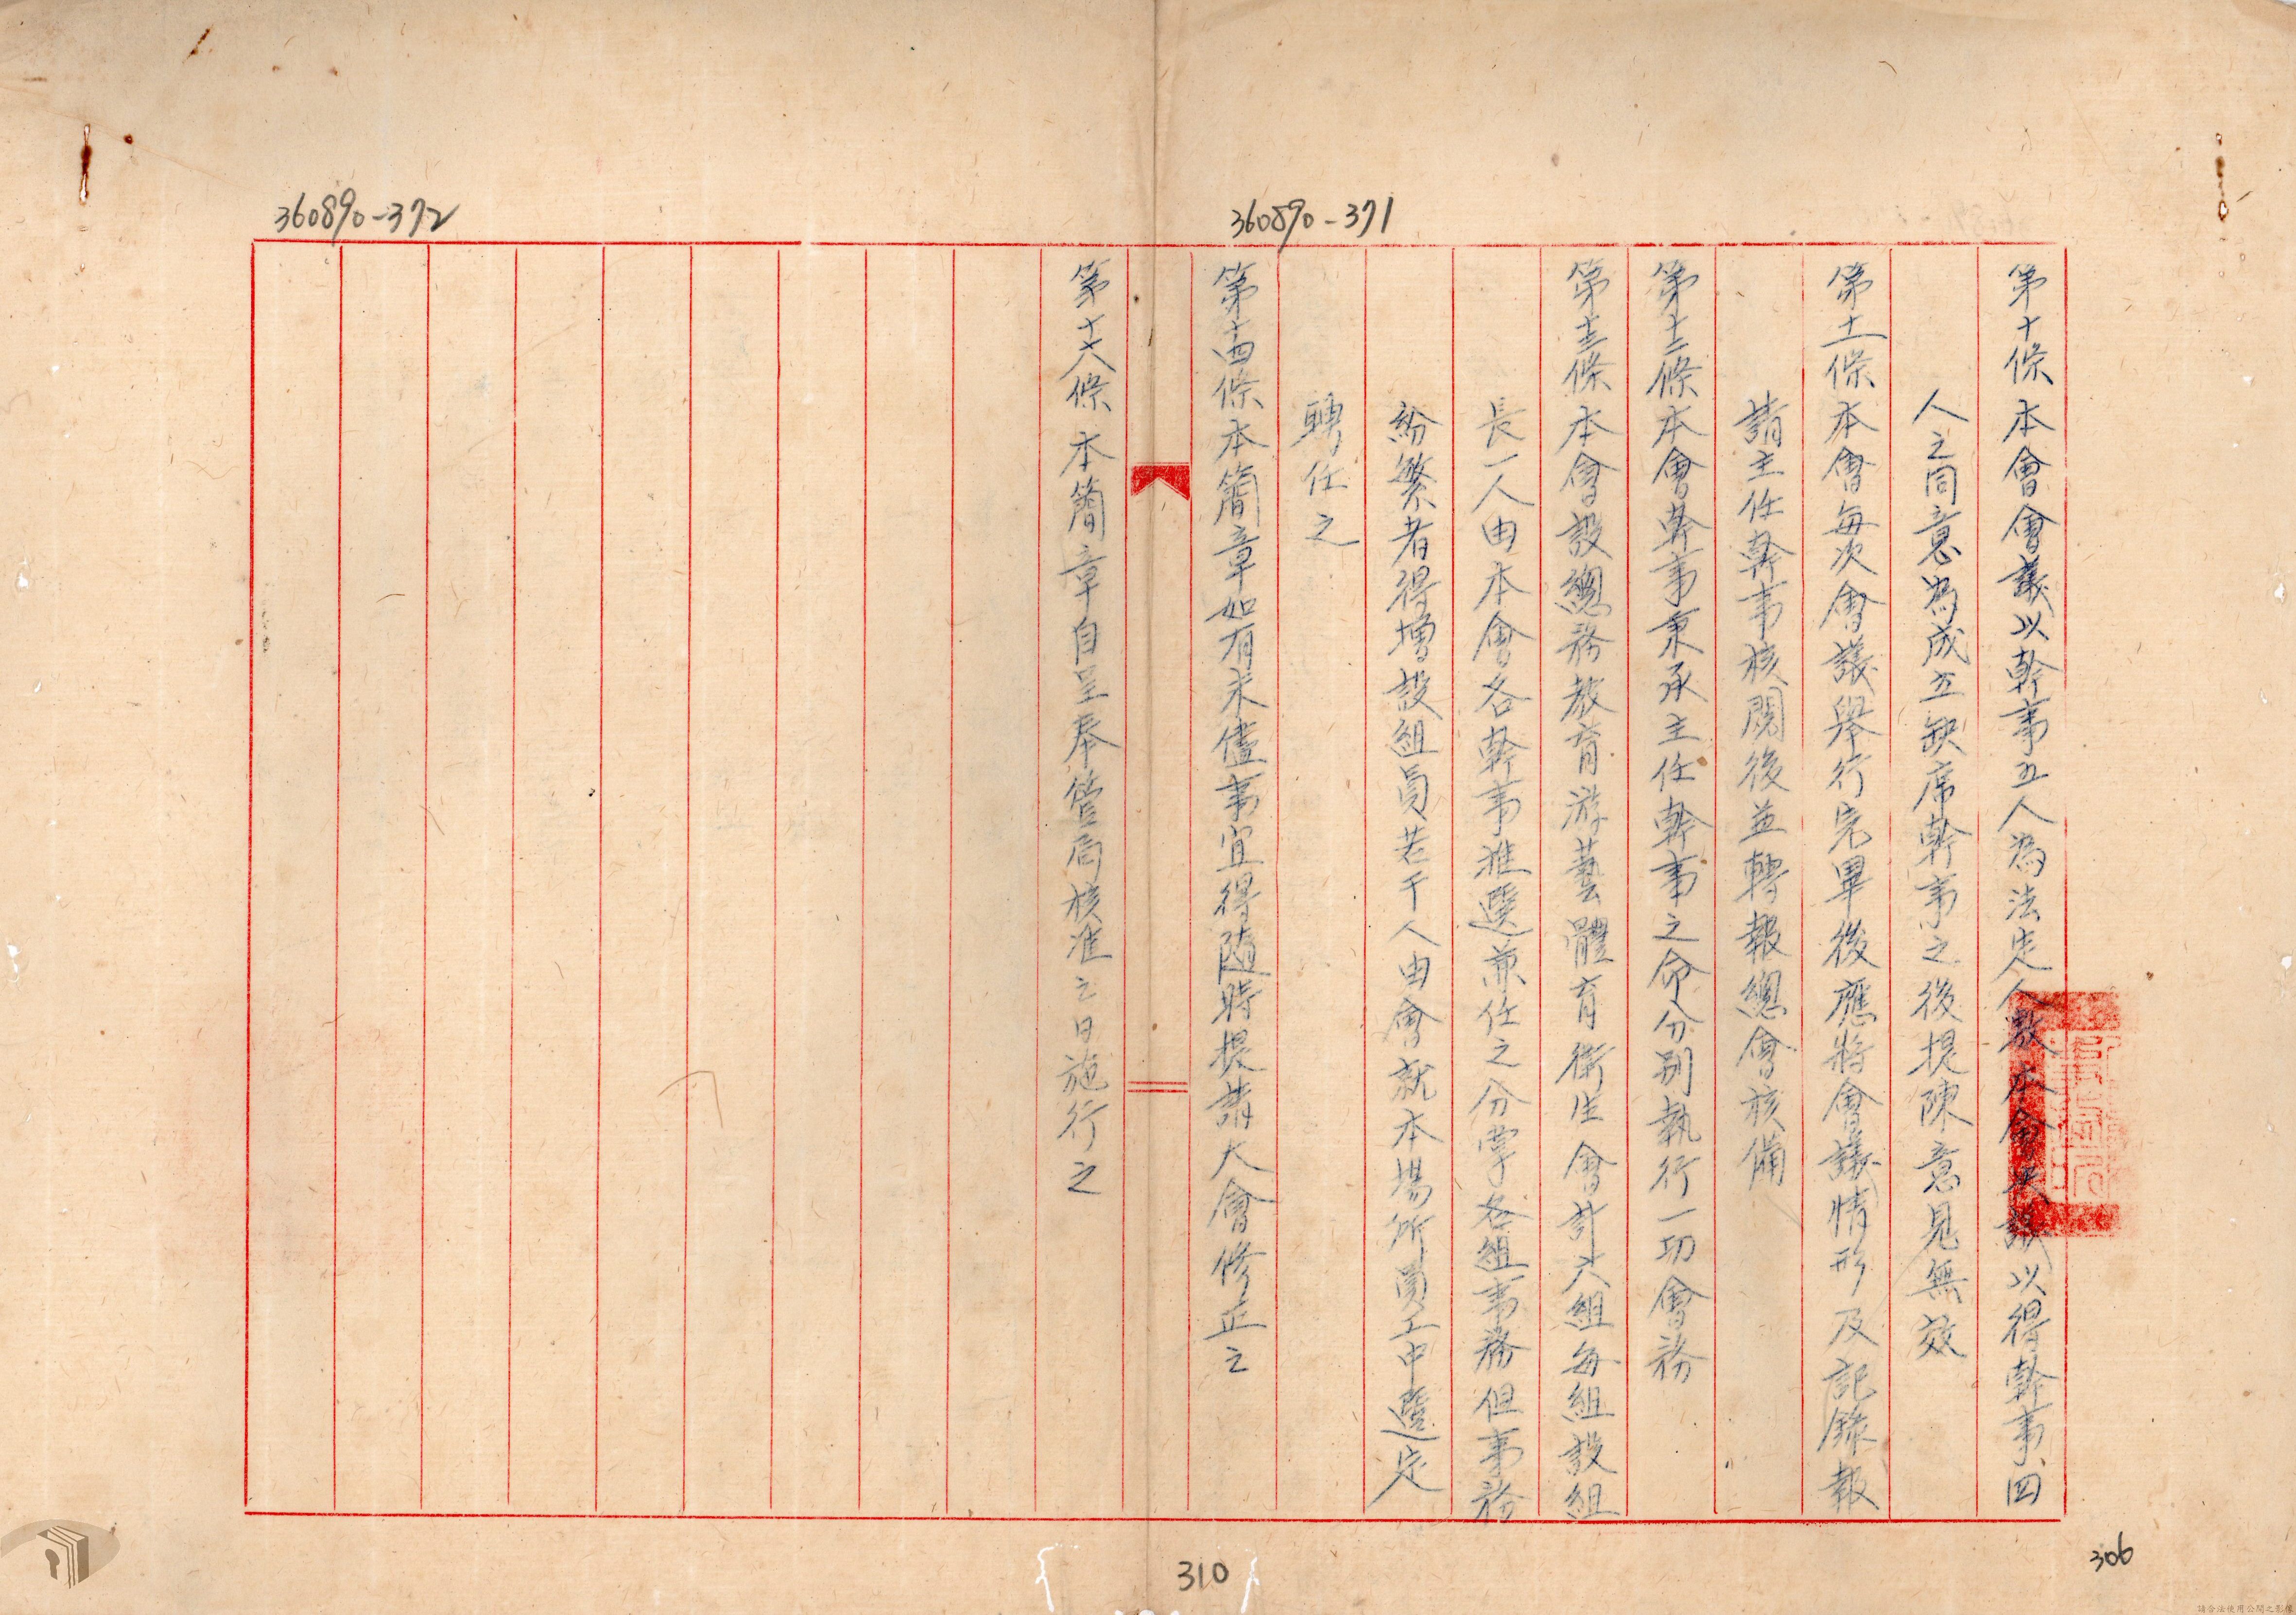 360890-371
第十條 本會會議以幹事五人為法定人數本會決議以得幹事四
人之同意為成立缺席幹事之後提陳意見無效
第十一條 本會每次會議舉行完畢後應將會議情形及記錄報
請主任幹事核閱後並轉報總會核備
第十二條 本會幹事秉承主任幹事之命分別執行一切會務
第十三條 本會設總務教育游藝體育衛生會計六組每組設組
長一人由本會各幹事推選兼任之分掌各組事務但事務
紛繁者得增設組員若干人由會就本場所員工中選定
聘任之
第十四條 本簡章如有未儘事宜得隨時提請大會修正之
360890-372
條 本簡章自呈奉管局核准之日施行之
310
306
請合法使用公開之影像